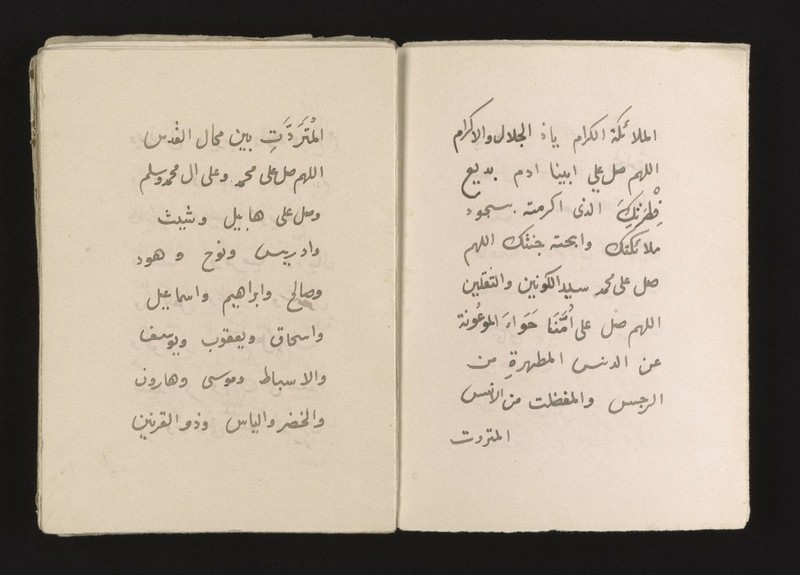 الملائكة الكرام ياذ الجلال والاكرام
اللهم صل علي ابينا ادم بديع
فِطْرَتِكَ الذى اكرمته بسجود
ملائكتك وابحته جنتك اللهم
صل على محمد سيد الكونين والثقلين
اللهم صل على أُمَّنَا حَوَاءَ
عن الدنس المطهرةِ من
الرجس والمفضلت من الانس
المتردت
المُتَرَدَّتِ بين محال القدس
اللهم صل على محمد وعلى ال محمد وسلم
وصل على هابيل وشيث
وادريس ونوح وهود
وصالح وابراهيم واسماعيل
واسحاق ويعقوب ويوسف
والاسباط وموسى وهارون
والخضر والياس وذو القرنين